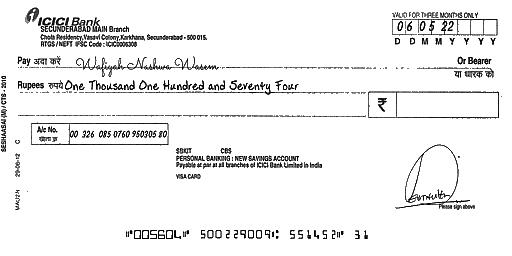 ICICI Bank
SECUNDERABAD MAIN Branch
Chola Residency,Vasavi Colony,Karkhana, Secunderabad - 500 015.
RTGS / NEFT IFSC Code : ICIC0006308
VALID FOR THREE MONTHS ONLY
0 6 0 5 2 2
D D M M Y Y Y Y
Pay अदा करें Wafiyah Nashwa Wasem Or Bearer
या धारक को
Rupees रुपये One Thousand One Hundred and Seventy Four
₹
A/c No. 00 326 085 0760 950305 80
SBKIT CBS
PERSONAL BANKING : NEW SAVINGS ACCOUNT
Payable at par at all branches of ICICI Bank Limited in India
VISA CARD
Please sign above
⑈005604⑈ 500229009⑆ 551452⑈ 31